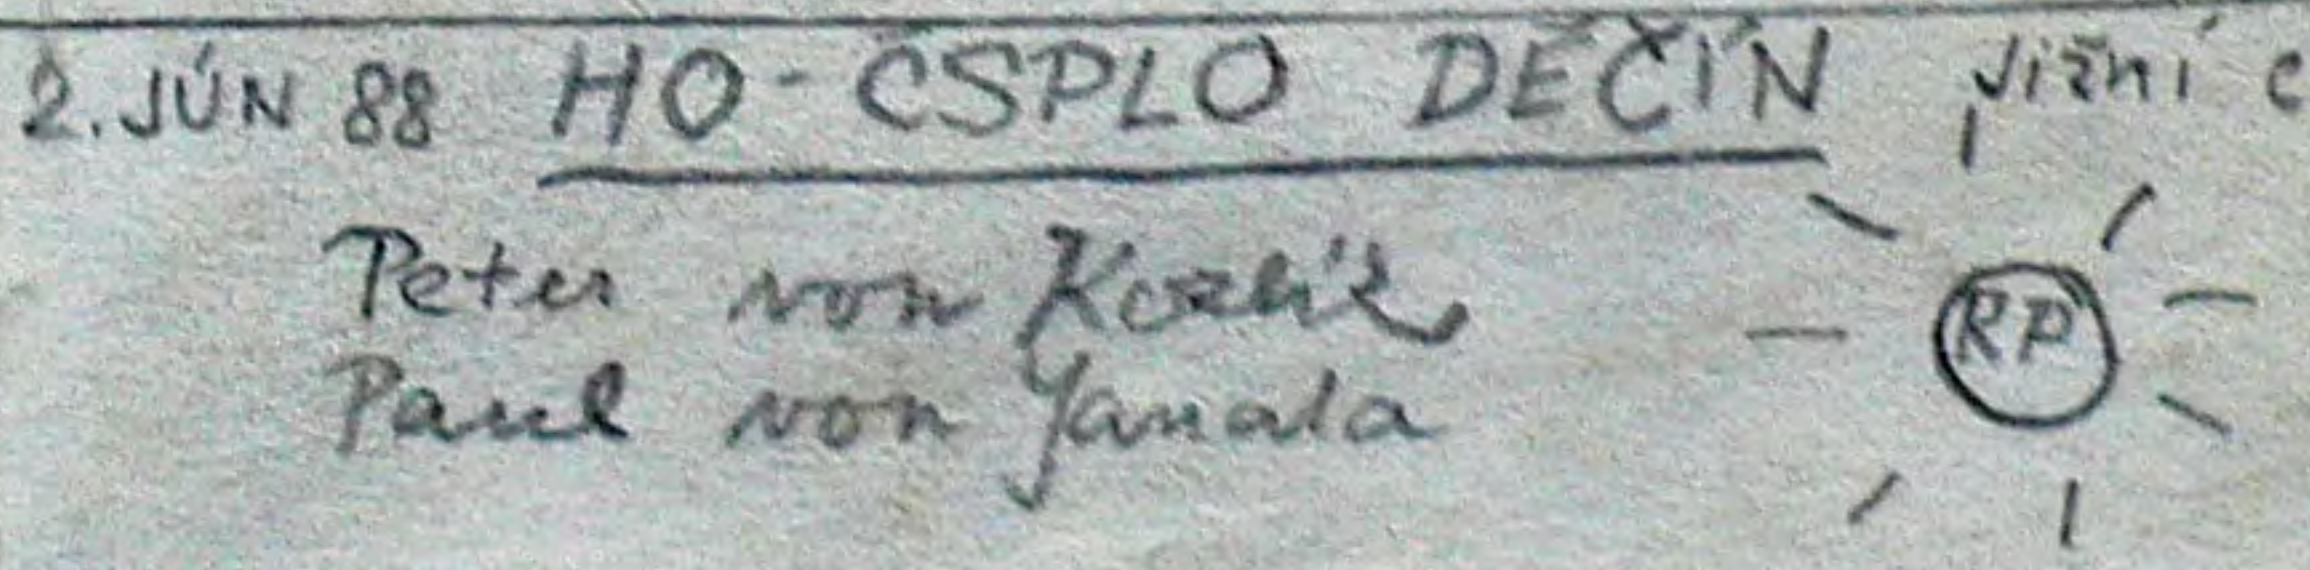 2. JÚN 88 HO - ČSPLO DĚČÍN Jižní
Peter von Kozlík
Paul von Yanata
RP